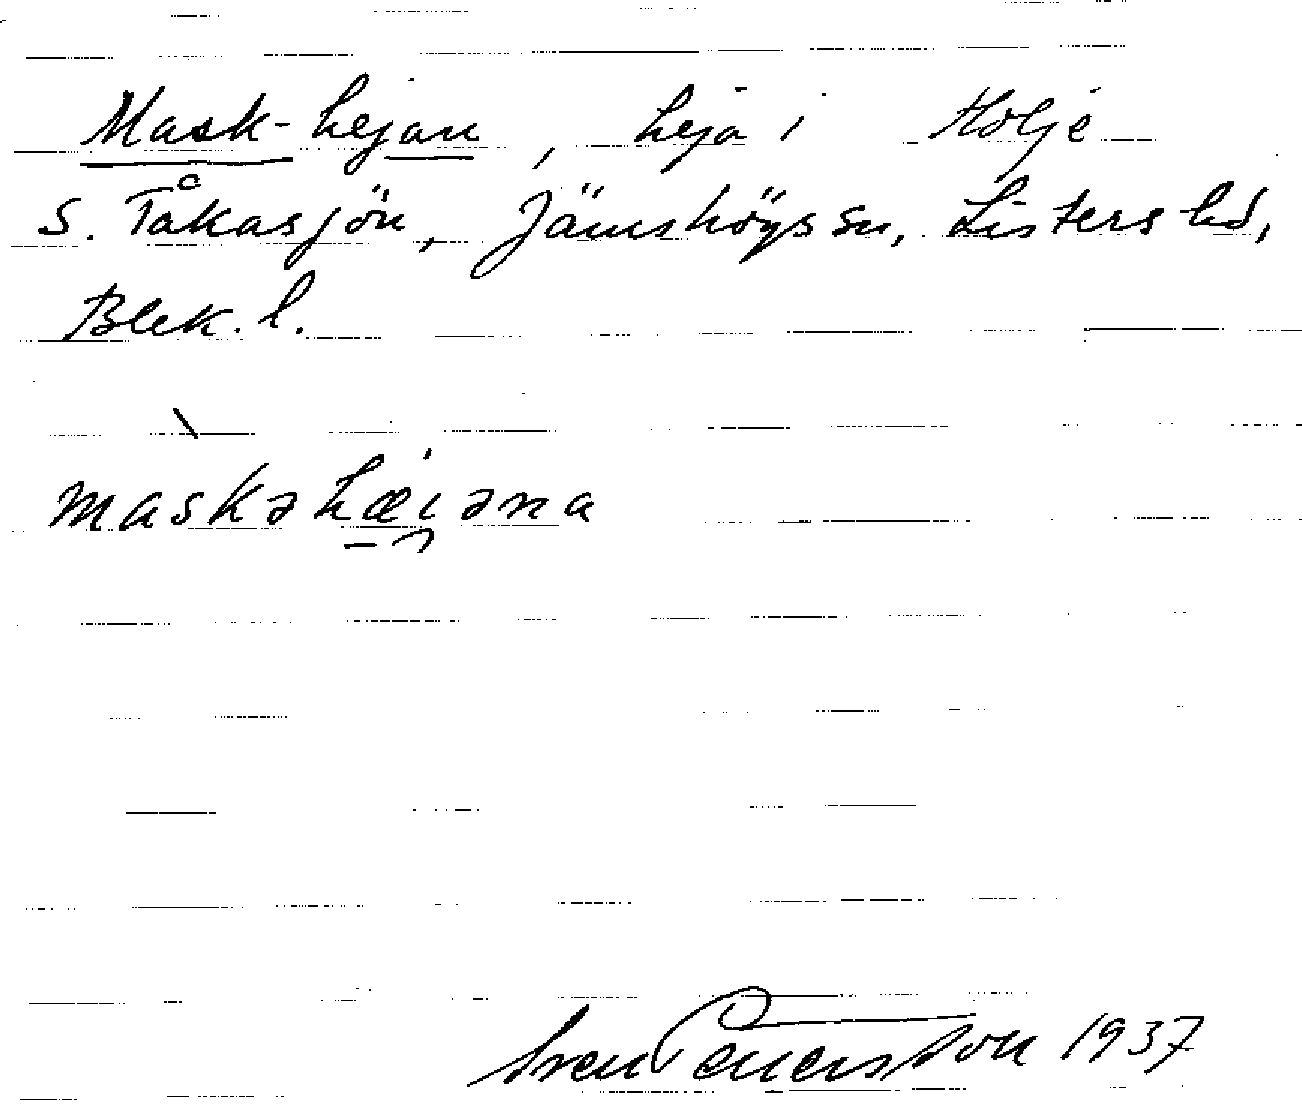 Mask-hejan, hejä i Holje
S. Tåkasjön, Jämshögs sn, Listers hd,
Blek. l.
maskəhæiəna
Sven Benerson 1937